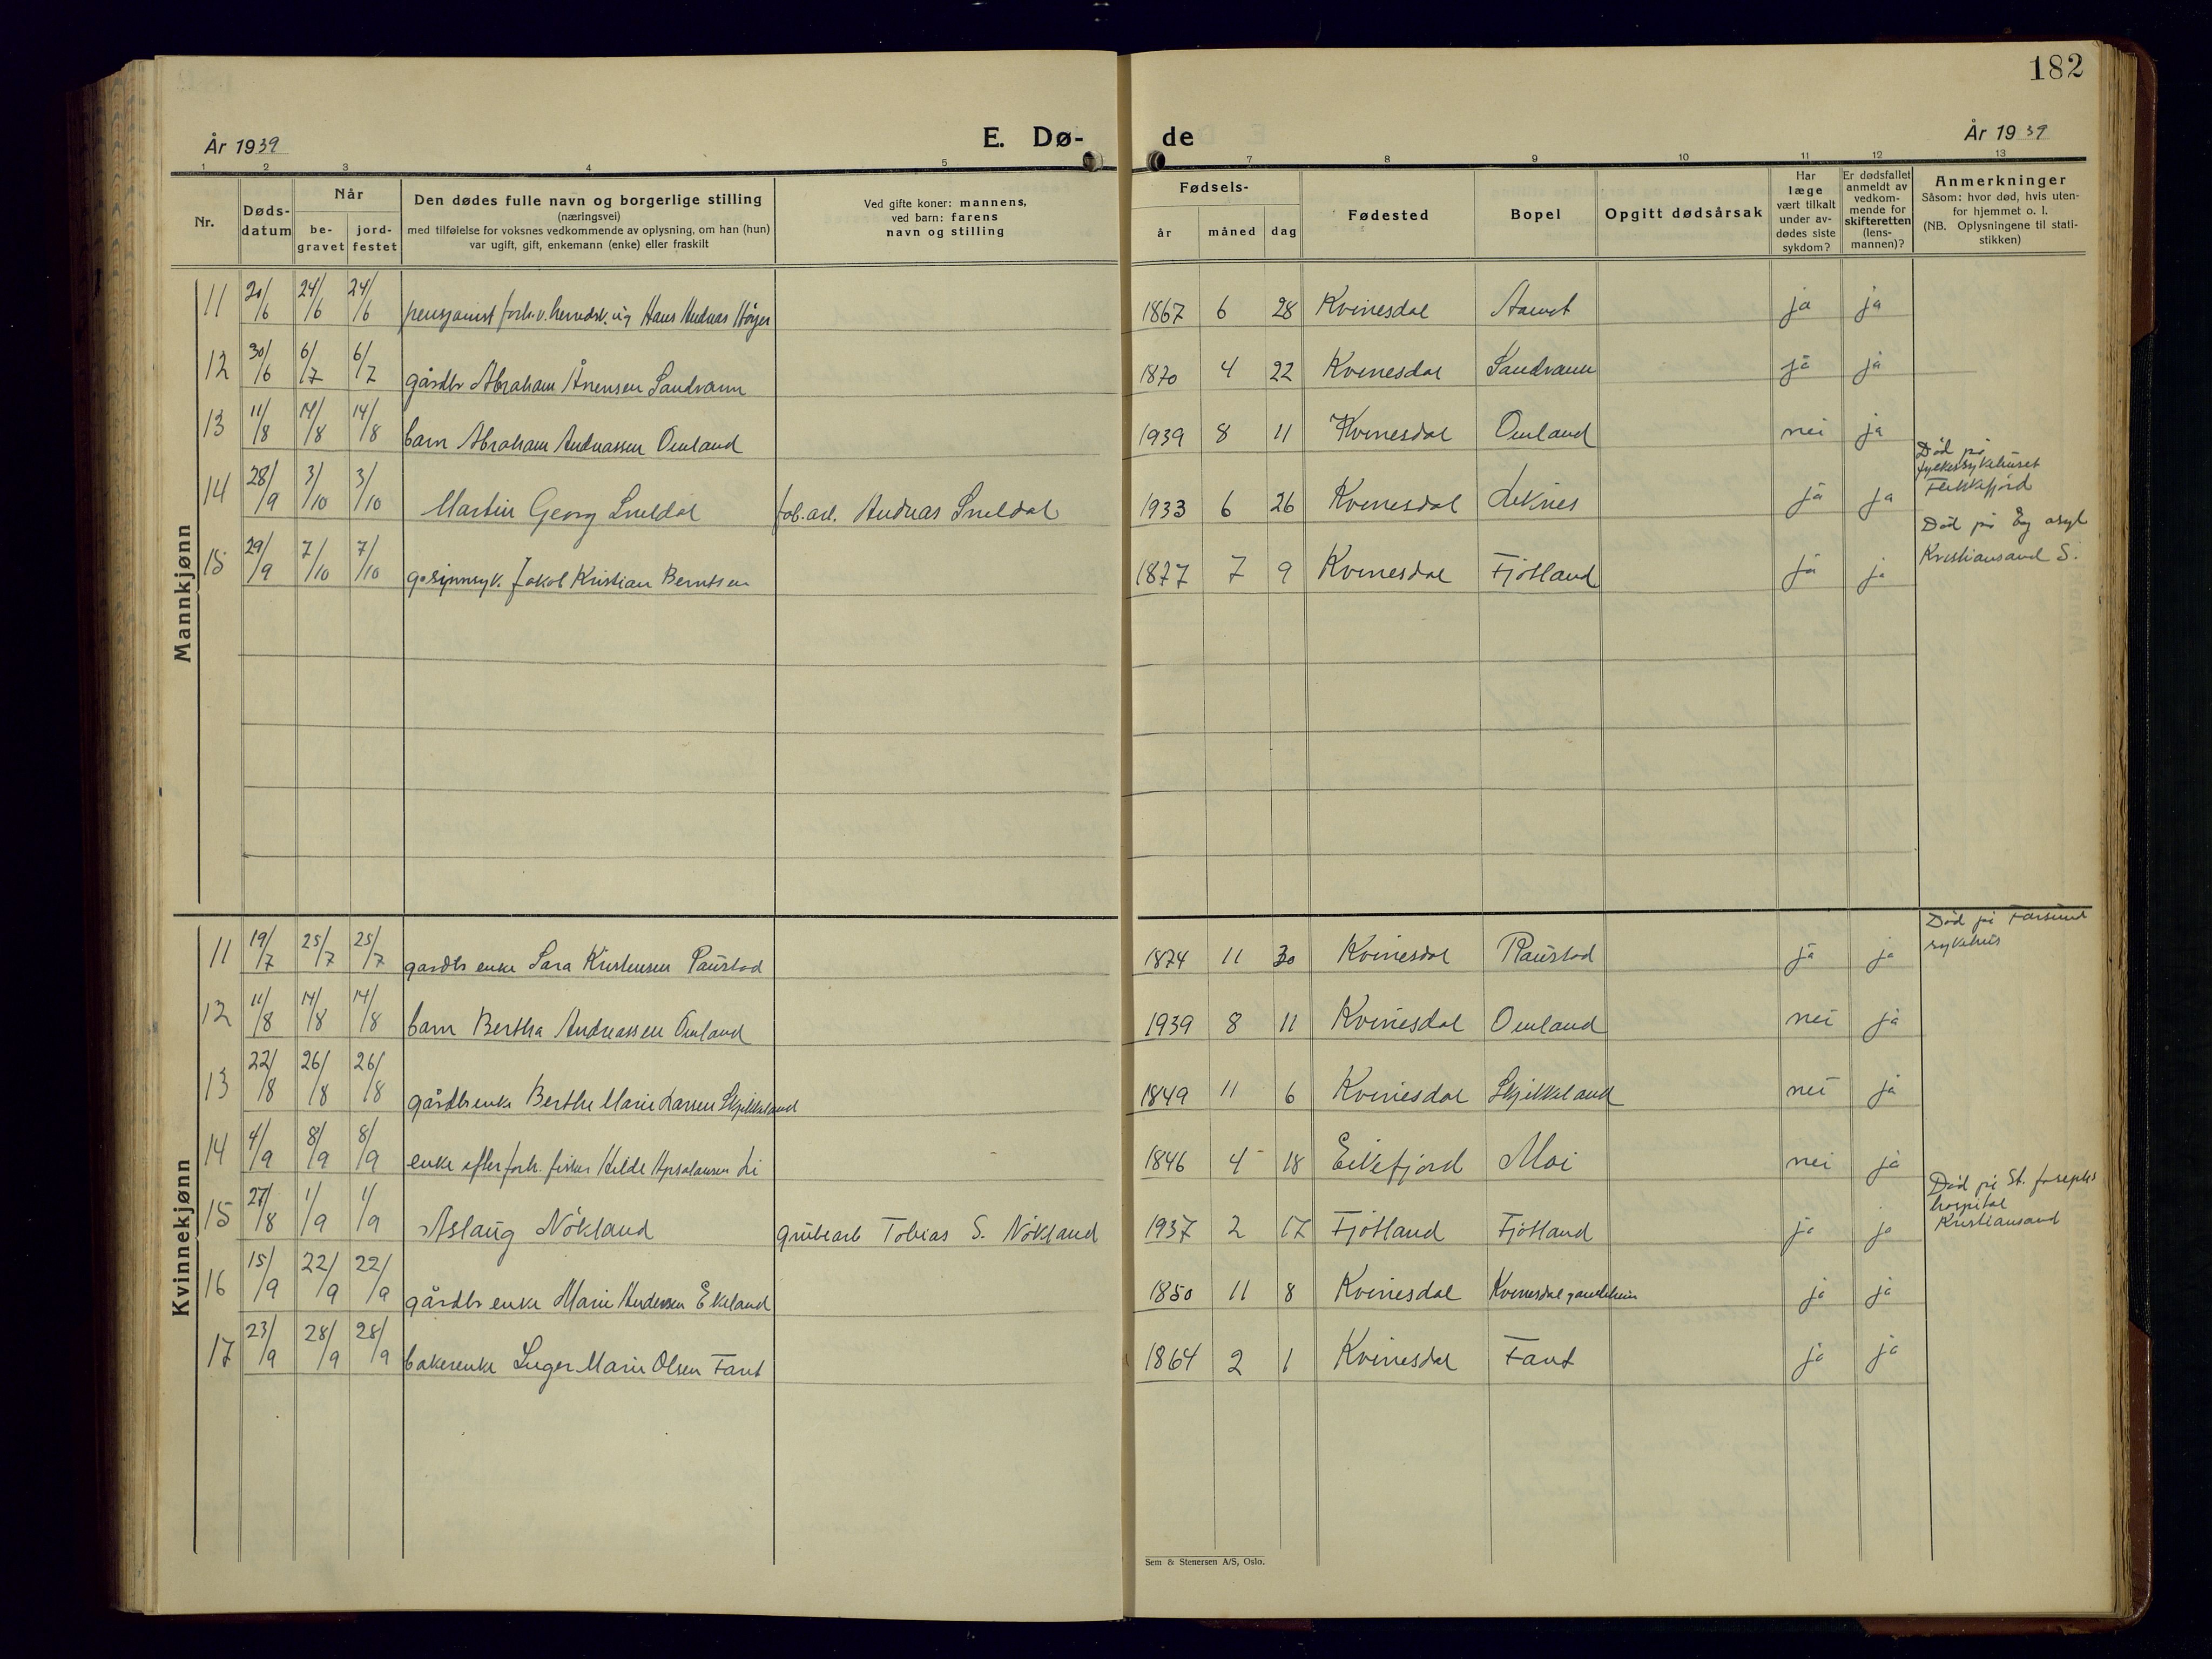 182
År 1939
E. Dø-
de
År 1939
1 2 3 4 5
7 8 9 10 11 12 13
Nr.
Døds-
datum
Når
be-
gravet
jord-
festet
Den dødes fulle navn og borgerlige stilling
(næringsvei)
med tilføielse for voksnes vedkommende av oplysning, om han (hun)
var ugift, gift, enkemann (enke) eller fraskilt
Ved gifte koner: mannens,
ved barn: farens
navn og stilling
Fødsels-
år måned dag
Fødested
Bopel
Opgitt dødsårsak
Har
læge
vært tilkalt
under av-
dødes siste
sykdom?
Er dødsfallet
anmeldt av
vedkom-
mende for
skifteretten
(lens-
mannen)?
Anmerkninger
Såsom: hvor død, hvis uten-
for hjemmet o. l.
(NB. Oplysningene til stati-
stikken)
Mannkjønn
11 24/6 24/6 pensjonist Hans Andreas 1867 6 28 Kvinesdal ja ja
12 30/6 6/7 6/7 gårdbr Abraham Ånensen Sandvann 1870 4 22 Kvinesdal Sandvann ja ja
13 11/8 14/8 14/8 barn Abraham Andreassen Omland 1939 8 11 Kvinesdal Omland nei ja
14 28/9 3/10 3/10 Martin Georg fab.arb. Andreas 1933 6 26 Kvinesdal ja ja
Død på
fylkessykehuset
Flekkefjord
15 29/9 7/10 7/10 Jakob Kristian Berntsen 1877 7 9 Kvinesdal Fjotland ja ja
Død på Eg asyl
Kristiansand S.
Kvinnekjønn
11 19/7 25/7 25/7 gardbr enke Sara Kristensen Raustad 1874 11 30 Kvinesdal Raustad ja ja
Død på Farsund
sykehus
12 11/8 14/8 14/8 barn Bertha Andreassen Omland 1939 8 11 Kvinesdal Omland nei ja
13 22/8 26/8 26/8 gårdbr enke Berthe Marie Larsen Skjekkeland 1849 11 6 Kvinesdal Skjekkeland nei ja
14 4/9 8/9 8/9 enke efter forh. fisker Li 1846 4 18 Eikefjord Moi nei ja
15 27/8 1/9 1/9 Aslaug Nökland grubearb Tobias S. Nökland 1937 2 17 Fjotland Fjotland ja ja
Død på St. Josephs
hospital
Kristiansand
16 15/9 22/9 22/9 gårdbr enke Marie Andersen Ekeland 1850 11 8 Kvinesdal Kvinesdal gamlehim ja ja
17 23/9 28/9 28/9 bakerenke Inger Marie Olsen Faret 1864 2 1 Kvinesdal Faret ja ja
Sem & Stenersen A/S, Oslo.